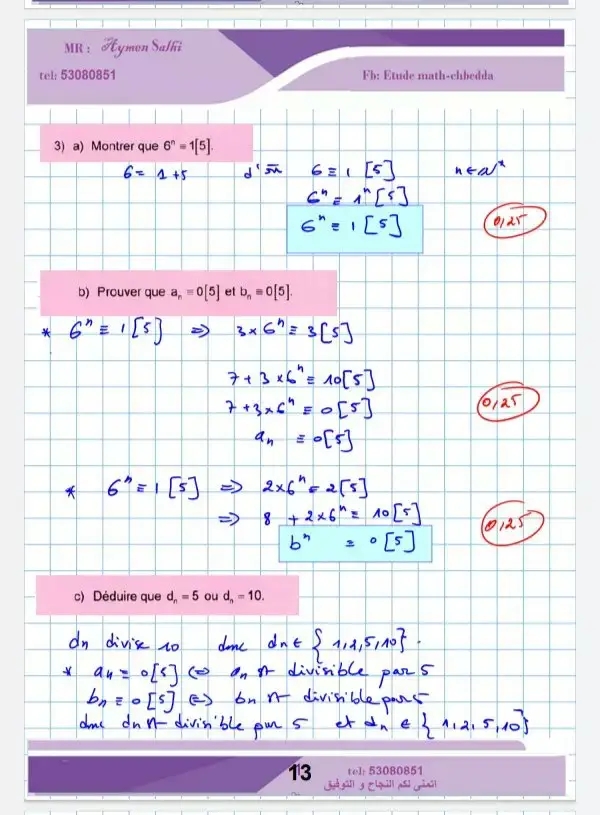 MR : Aymen Salhi
tel: 53080851 Fb: Etude math-chbedda
3) a) Montrer que 6ⁿ ≡ 1[5].
6 = 1 + 5 d'où 6 ≡ 1 [5] n ∈ ℕ*
6ⁿ ≡ 1ⁿ [5]
6ⁿ ≡ 1 [5] 0,25
b) Prouver que aₙ ≡ 0[5] et bₙ ≡ 0[5].
* 6ⁿ ≡ 1 [5] ⇒ 3 × 6ⁿ ≡ 3 [5]
7 + 3 × 6ⁿ ≡ 10 [5]
7 + 3 × 6ⁿ ≡ 0 [5] 0,25
aₙ ≡ 0 [5]
* 6ⁿ ≡ 1 [5] ⇒ 2 × 6ⁿ ≡ 2 [5]
⇒ 8 + 2 × 6ⁿ ≡ 10 [5] 0,25
bⁿ ≡ 0 [5]
c) Déduire que dₙ = 5 ou dₙ = 10.
dn divise 10 donc dn ∈ { 1,2,5,10 } .
* aₙ ≡ 0 [5] ⇔ aₙ divisible par 5
bₙ ≡ 0 [5] ⇔ bn divisible par 5
donc dn divisible par 5 et dₙ ∈ { 1, 2, 5, 10 }
13 tel: 53080851
اتمنى لكم النجاح و التوفيق